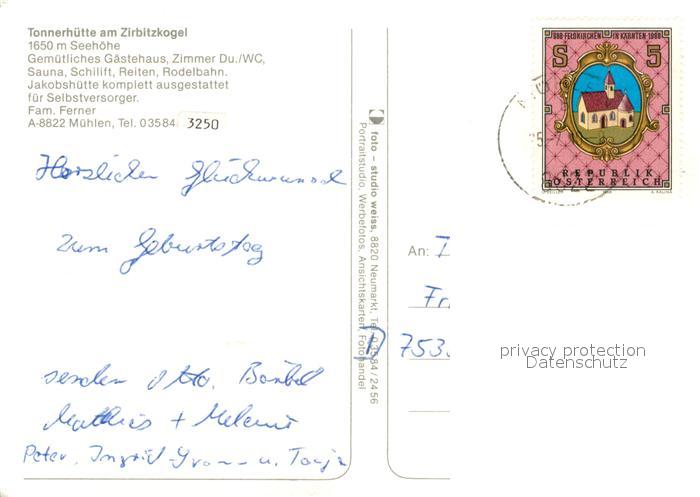 Tonnerhütte am Zirbitzkogel
1650 m Seehöhe
Gemütliches Gästehaus, Zimmer Du./WC,
Sauna, Schilift, Reiten, Rodelbahn.
Jakobshütte komplett ausgestattet
für Selbstversorger.
Fam. Ferner
A-8822 Mühlen, Tel. 03584 3250
Herzlichen Glückwunsch
zum Geburtstag
senden Otto, Bärbel
Mathias + Melanie
Peter, Ingrid Yvonne u. Tanja
foto – studio weiss, 8820 Neumarkt, Tel. 03584/2456
Portraitstudio, Werbefotos, Ansichtskarten, Fotohandel
888 FELDKIRCHEN IN KÄRNTEN 1988
S 5
REPUBLIK
ÖSTERREICH
An:
Fr
D 753
privacy protection
Datenschutz